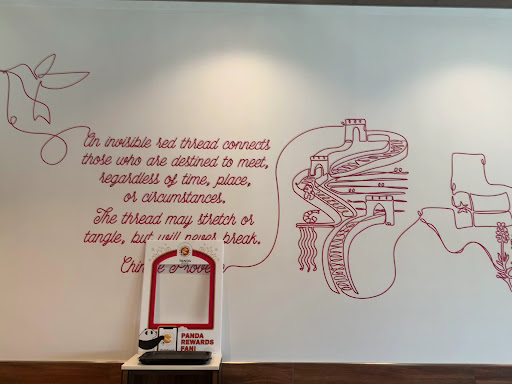 An invisible red thread connects
those who are destined to meet,
regardless of time, place,
or circumstances.
The thread may stretch or
tangle, but will never break.
PANDA
REWARDS
FAN!